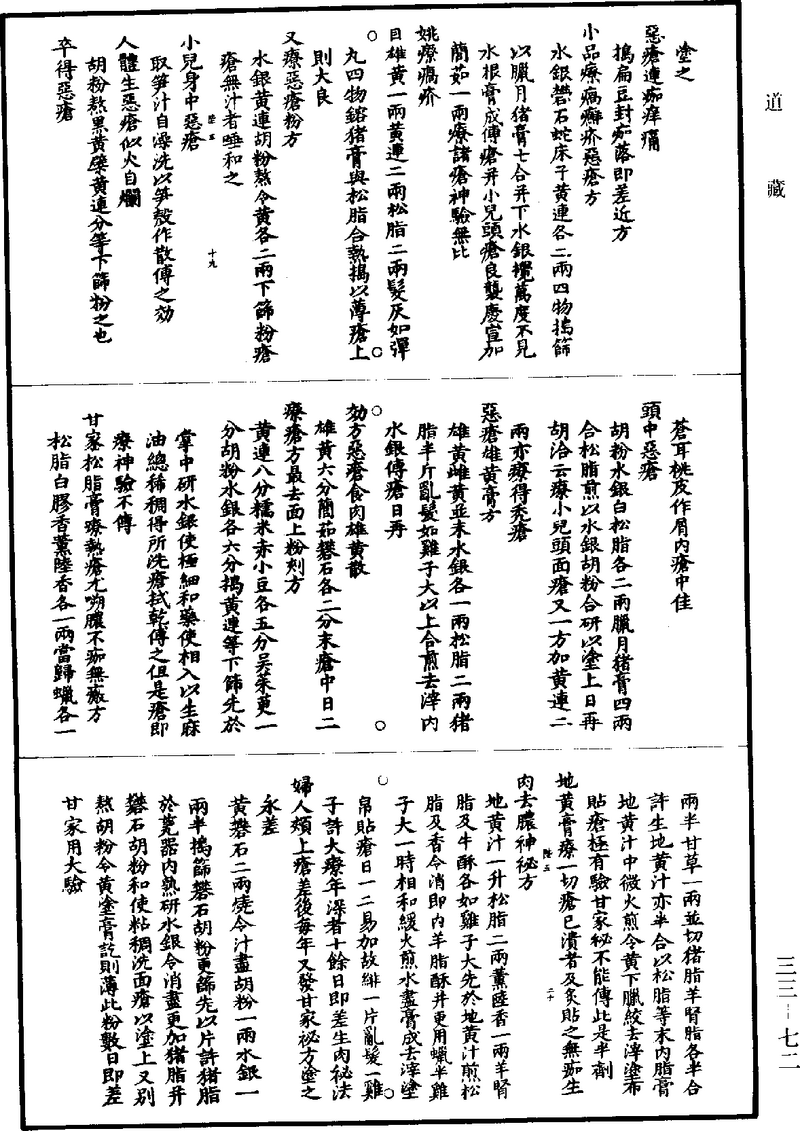 道藏
塗之
惡瘡連痂痒痛
搗扁豆封痂落即差近方
小品療瘑癬疥惡瘡方
水銀礬石蛇床子黄連各二兩四物搗篩
以臘月猪膏七合并下水銀攪萬度不見
水根膏成傅瘡并小兒頭瘡良龔慶宣加
䕡茹一兩療諸瘡神驗無比
姚療瘑疥
目雄黄一兩黄連二兩松脂二兩髮灰如彈
丸四物鎔猪膏與松脂合熱搗以薄瘡上
則大良
又療惡瘡粉方
水銀黄連胡粉熬令黄各二兩下篩粉瘡
瘡無汁者唾和之
小兒身中惡瘡
取笋汁自澡洗以笋殼作散傅之効
人體生惡瘡似火自爛
胡粉熬黑黄蘗黄連分等下篩粉之也
卒得惡瘡
蒼耳桃皮作屑内瘡中佳
頭中惡瘡
胡粉水銀白松脂各二兩臘月猪膏四兩
合松脂煎以水銀胡粉合研以塗上日再
胡洽云療小兒頭面瘡又一方加黄連二
兩亦療得禿瘡
惡瘡雄黄膏方
雄黄雌黄並末水銀各一兩松脂二兩猪
脂半斤亂髮如雞子大以上合煎去滓内
水銀傅瘡日再
効方惡瘡食肉雄黄散
雄黄六分䕡茹礬石各二分末瘡中日二
療瘡方最去面上粉刾方
黄連八分糯米赤小豆各五分吴茱萸一
分胡粉水銀各六分搗黄連等下篩先於
掌中研水銀使極細和藥使相入以生麻
油總稀稠得所洗瘡拭乾傅之但是瘡即
療神驗不傳
甘家松脂膏療熱瘡尤嗍膿不痂無瘢方
松脂白膠香薰陸香各一兩當歸蠟各一
兩半甘草一兩並切猪脂羊腎脂各半合
許生地黄汁亦半合以松脂等末内脂膏
地黄汁中微火煎令黄下臘絞去滓塗布
貼瘡極有驗甘家秘不能傳此是半劑
地黄膏療一切瘡已潰者及炙貼之無痂生
肉去膿神秘方
地黄汁一升松脂二兩薰陸香一兩羊腎
脂及牛酥各如雞子大先於地黄汁煎松
脂及香令消即内羊脂酥并更用蠟半雞
子大一時相和緩火煎水盡膏成去滓塗
帛貼瘡日一二易加故緋一片亂髮一雞
子許大療年深者十餘日即差生肉祕法
婦人頰上瘡差後每年又發甘家秘方塗之
永差
黄礬石二兩燒令汁盡胡粉一兩水銀一
兩半搗篩礬石胡粉更篩先以片許猪脂
於甆器内熟研水銀令消盡更加猪脂并
礬石胡粉和使粘稠洗面瘡以塗上又别
熬胡粉令黄塗膏訖則薄此粉數日即差
甘家用大驗
陸五
十九
陸五
二十
三三—七二